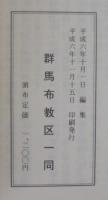 平成六年十月一日 編集
平成六年十一月十五日 印刷発行
群馬布教区一同
頒布定価 一、二〇〇円